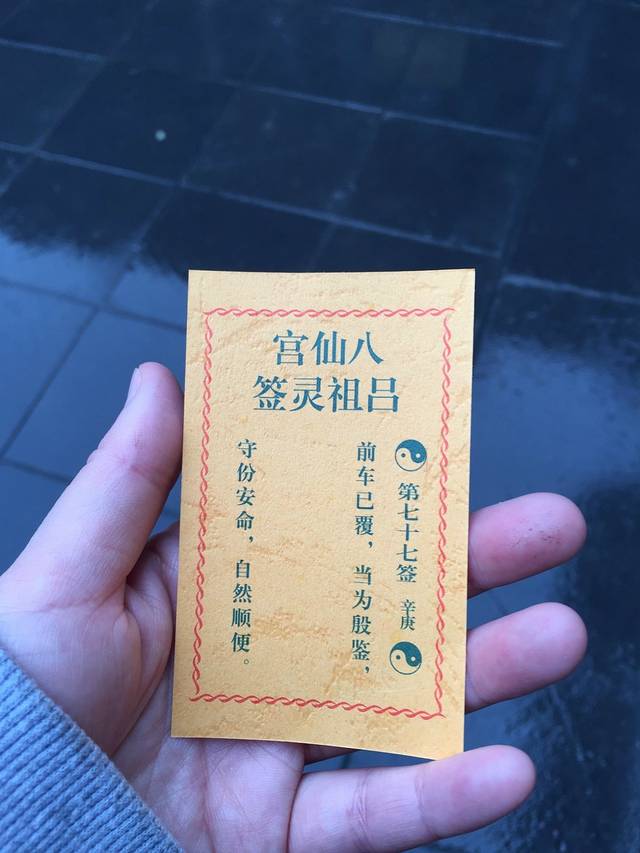 八仙宫
吕祖灵签
第七十七签 辛庚
前车已覆，当为殷鉴，
守份安命，自然顺便。